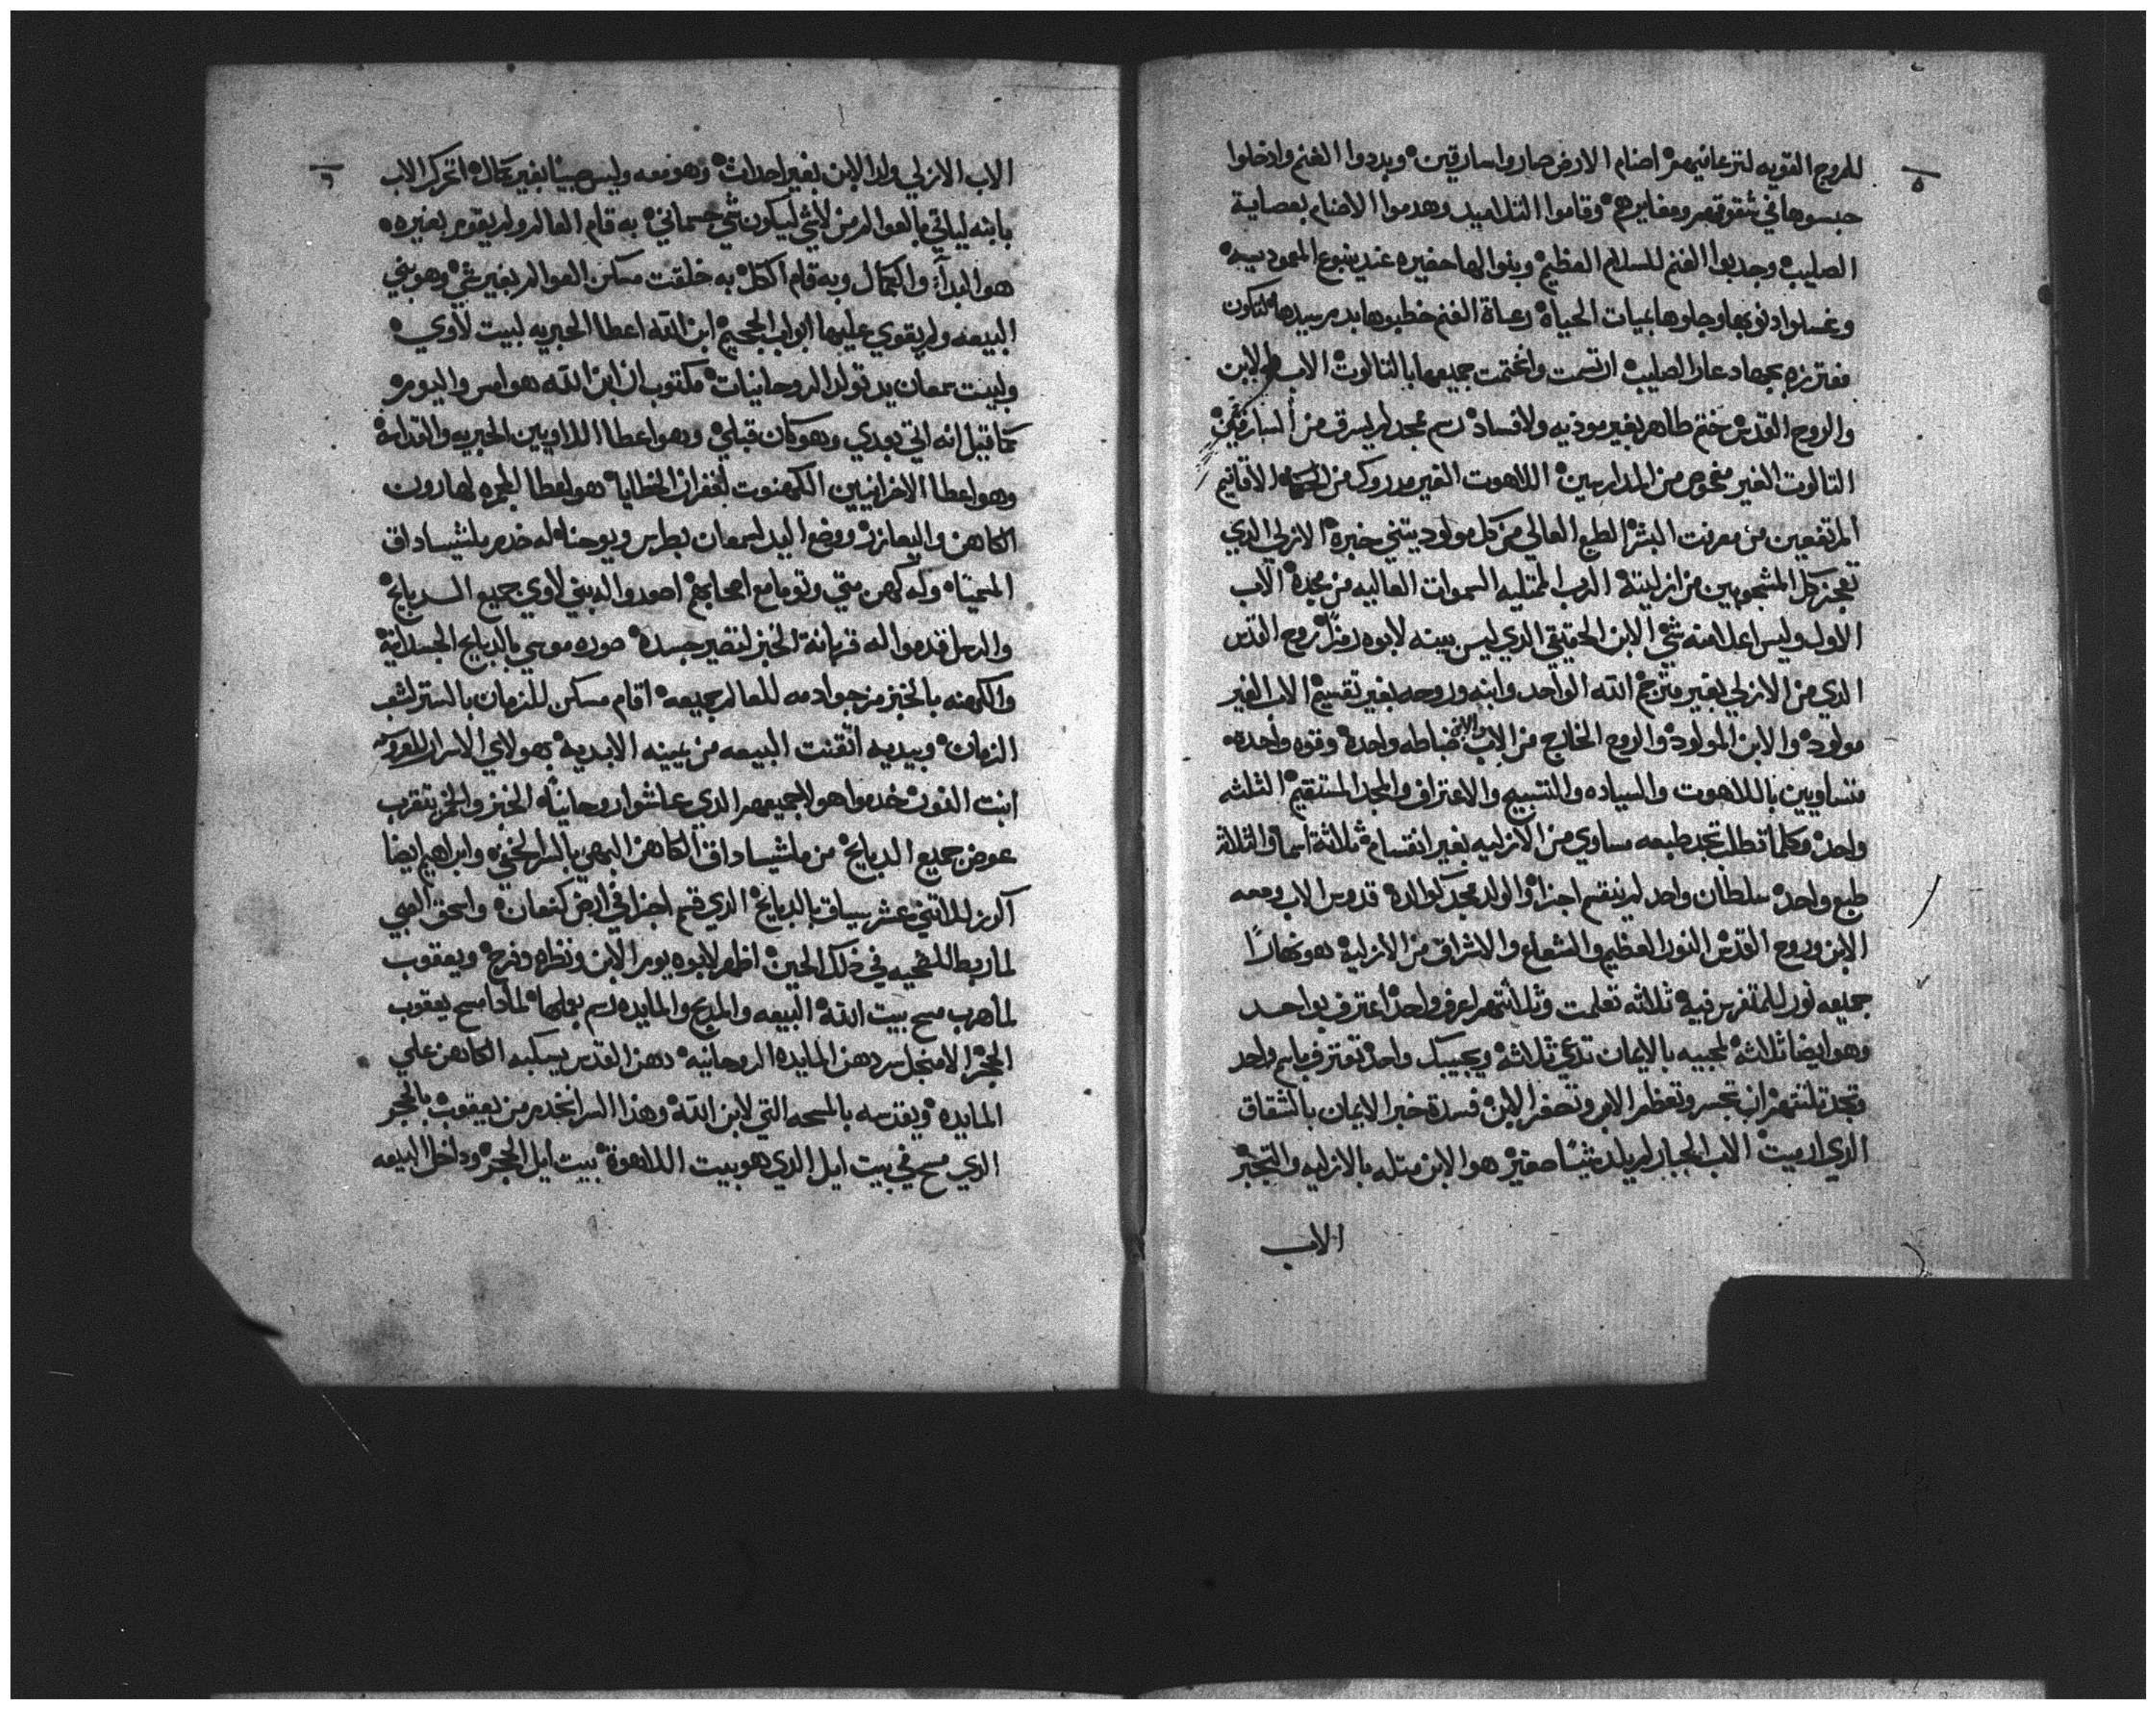 ٥
للمروج القويه لترعا فيهم اصنام الارض صاروا سارقين وبددوا الغنم وادخلوا
حبسوها في شقوقهم ومغايرهم وقاموا التلاميد وهدموا الاصنام بعصاية
الصليب وجدبوا الغنم للسلام العظيم وبنوا لها حضيره عند ينبوع المعموديه
وغسلوا دنوبها وجلوها بميات الحياة رعاة الغنم خطبوها بدم سيدها لتكون
مفترزه بجهاد عار الصليب ارتسمت واختتمت جميعها بالتالوت الاب والابن
والروح القدس ختم طاهر بغير موذيه ولا فساد رسم مجد لم يسرق من السارقين
التالوت الغير مفحوص من المدارسين اللاهوت الغير مدروك من الحكماء الاقانيم
المرتفعين من معرفت البشر الطبع العالي من كل مولود يتني خبره الازلي الدي
تعجز كل المشجوبين من ازليته الرب الممتليه السموات العاليه من مجده الاب
الاول وليس اعلا منه شي الابن الحقيقي الدي ليس بينه لابوه رمزا روح القدس
الدي من الازلي بغير مترجم الله الواحد وابنه وروحه بغير تقسيم الاب الغير
مولود والابن المولود والروح الخارج من الاب والابن ضابطه واحده وقوه واحده
متساويين باللاهوت والسياده والتسبيح والاعتراف والمجد المستقيم الثلثه
واحد وكلما تطلب تجد طبعه مساوي من الازليه بغير انقسام ثلاثة اسما والثلاثه
طبع واحد سلطان واحد لم ينقسم اجزاء والولد مجد كوالده قدوس الاب ومعه
الابن وروح القدس النور العظيم والشعاع والاشراق من الازليه هو نهارا
جميعه نور للمتفرس فيه ثلاثه تعلمت وثلاثتهم اعرف واحد اعترف بواحد
وهو ايضا ثلاثه لمحبيه بالايمان تدعي ثلاثه ويجيبك واحد تعترف باسم واحد
وتجد تلتتهم ان تجسر وتعظم الاب وتصغر الابن فسدة خبر الايمان بالشقاق
الدي ارميت الاب الجبار لم يلد شيئا صغير هو الابن متله بالازليه والتجبر
الاب
٦
الاب الازلي ولد الابن بغير احداث وهو معه وليس صبيا بغير كمال اتحرك الاب
بابنه لياتي بالعوالم من لاشي ليكون شي جسماني به قام العالم ولم يقوم بغيره
هو البدأ والكمال وبه قام الكل به خلقت مساكن العوالم بغير شي وهو بني
البيعه ولم يقوي عليها ابواب الجحيم ابن الله اعطا الحبريه لبيت لاوي
ولبيت سمعان يد تولد الروحانيات مكتوب ان ابن الله هو امس واليوم
كما قيل انه اتي بعدي وهو كان قبلي وهو اعطا اللاويين الحبريه والقداسه
وهو اعطا الافرانيين الكهنوت لغفران الخطايا هو اعطا المجمره لهارون
الكاهن واليعازر ووضع اليد لسمعان بطرس ويوحنا له خدم ملشيساداق
المحيتاه وله كهن متي وتوما مع اصحابهم اصعدوا لديني لاوي جميع الدبايح
والرسل قدموا له قربانة الخبز لتصير جسده صوره موسي بالدبايح الجسدانيه
والكهنه بالخبز من جوا دمه للعالم جميعه اقام مسكن للزمان بالستر لشعب
الزمان وبيديه اتقنت البيعه من يمينه الابديه بهولاي الاسرار المعروفه
ابنت الفون خدموا هولا جميعهم الدي عاشوا روحانيا الخبز والخمر يتقرب
عوض جميع الدبايح من ملشيساداق الكاهن البهي بالسر الخفي وابراهيم ايضا
اكرز للاتني عشر بسياق بالدبايح الدي قسم اجزا في ارض كنعان واسحق الصبي
لما ربط للضحيه في دلك الحين اظهر لابوه يوم الابن ونظره وفرح ويعقوب
لما هرب مسح بيت الله البيعه والمدبح والمايده رسم بعملها لمادا مسح يعقوب
الحجر الا من اجل سر دهن المايده الروحانيه دهن القدس يسكبه الكاهن علي
المايده ويقدسه بالمسحه التي لابن الله وهذا السر انحدر من يعقوب بالحجر
الدي مسح في بيت ايل الدي هو بيت اللاهوة بيت ايل الحجر وداخل البيعه